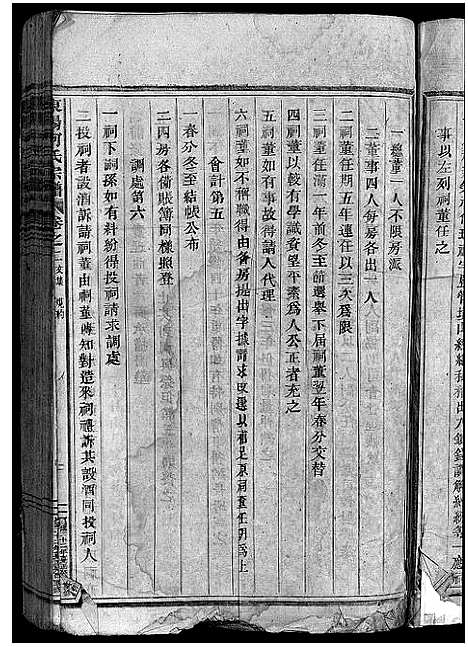 事以左列祠董任之
一總董一人不限房派
二董事四人每房各出一人
二祠董任期五年連任以三次爲限
三祠董任滿一年前冬至前選舉下屆祠董翌年春分交替
四祠董以較有學識資望平素爲人公正者充之
五祠董如有事故得請人代理
六祠董如不稱職得由各房提出字據請求改選以補足原祠董任期爲止
會計第五
一春分冬至結帳公布
二四房各備賬簿同樣照登
調處第六
一祠下詞孫如有糾紛得投祠請求調處
二投祠者設酒訴請祠董由祠董通知對造來祠禮訴其設酒同投祠人
何氏宗譜 卷之二 文集